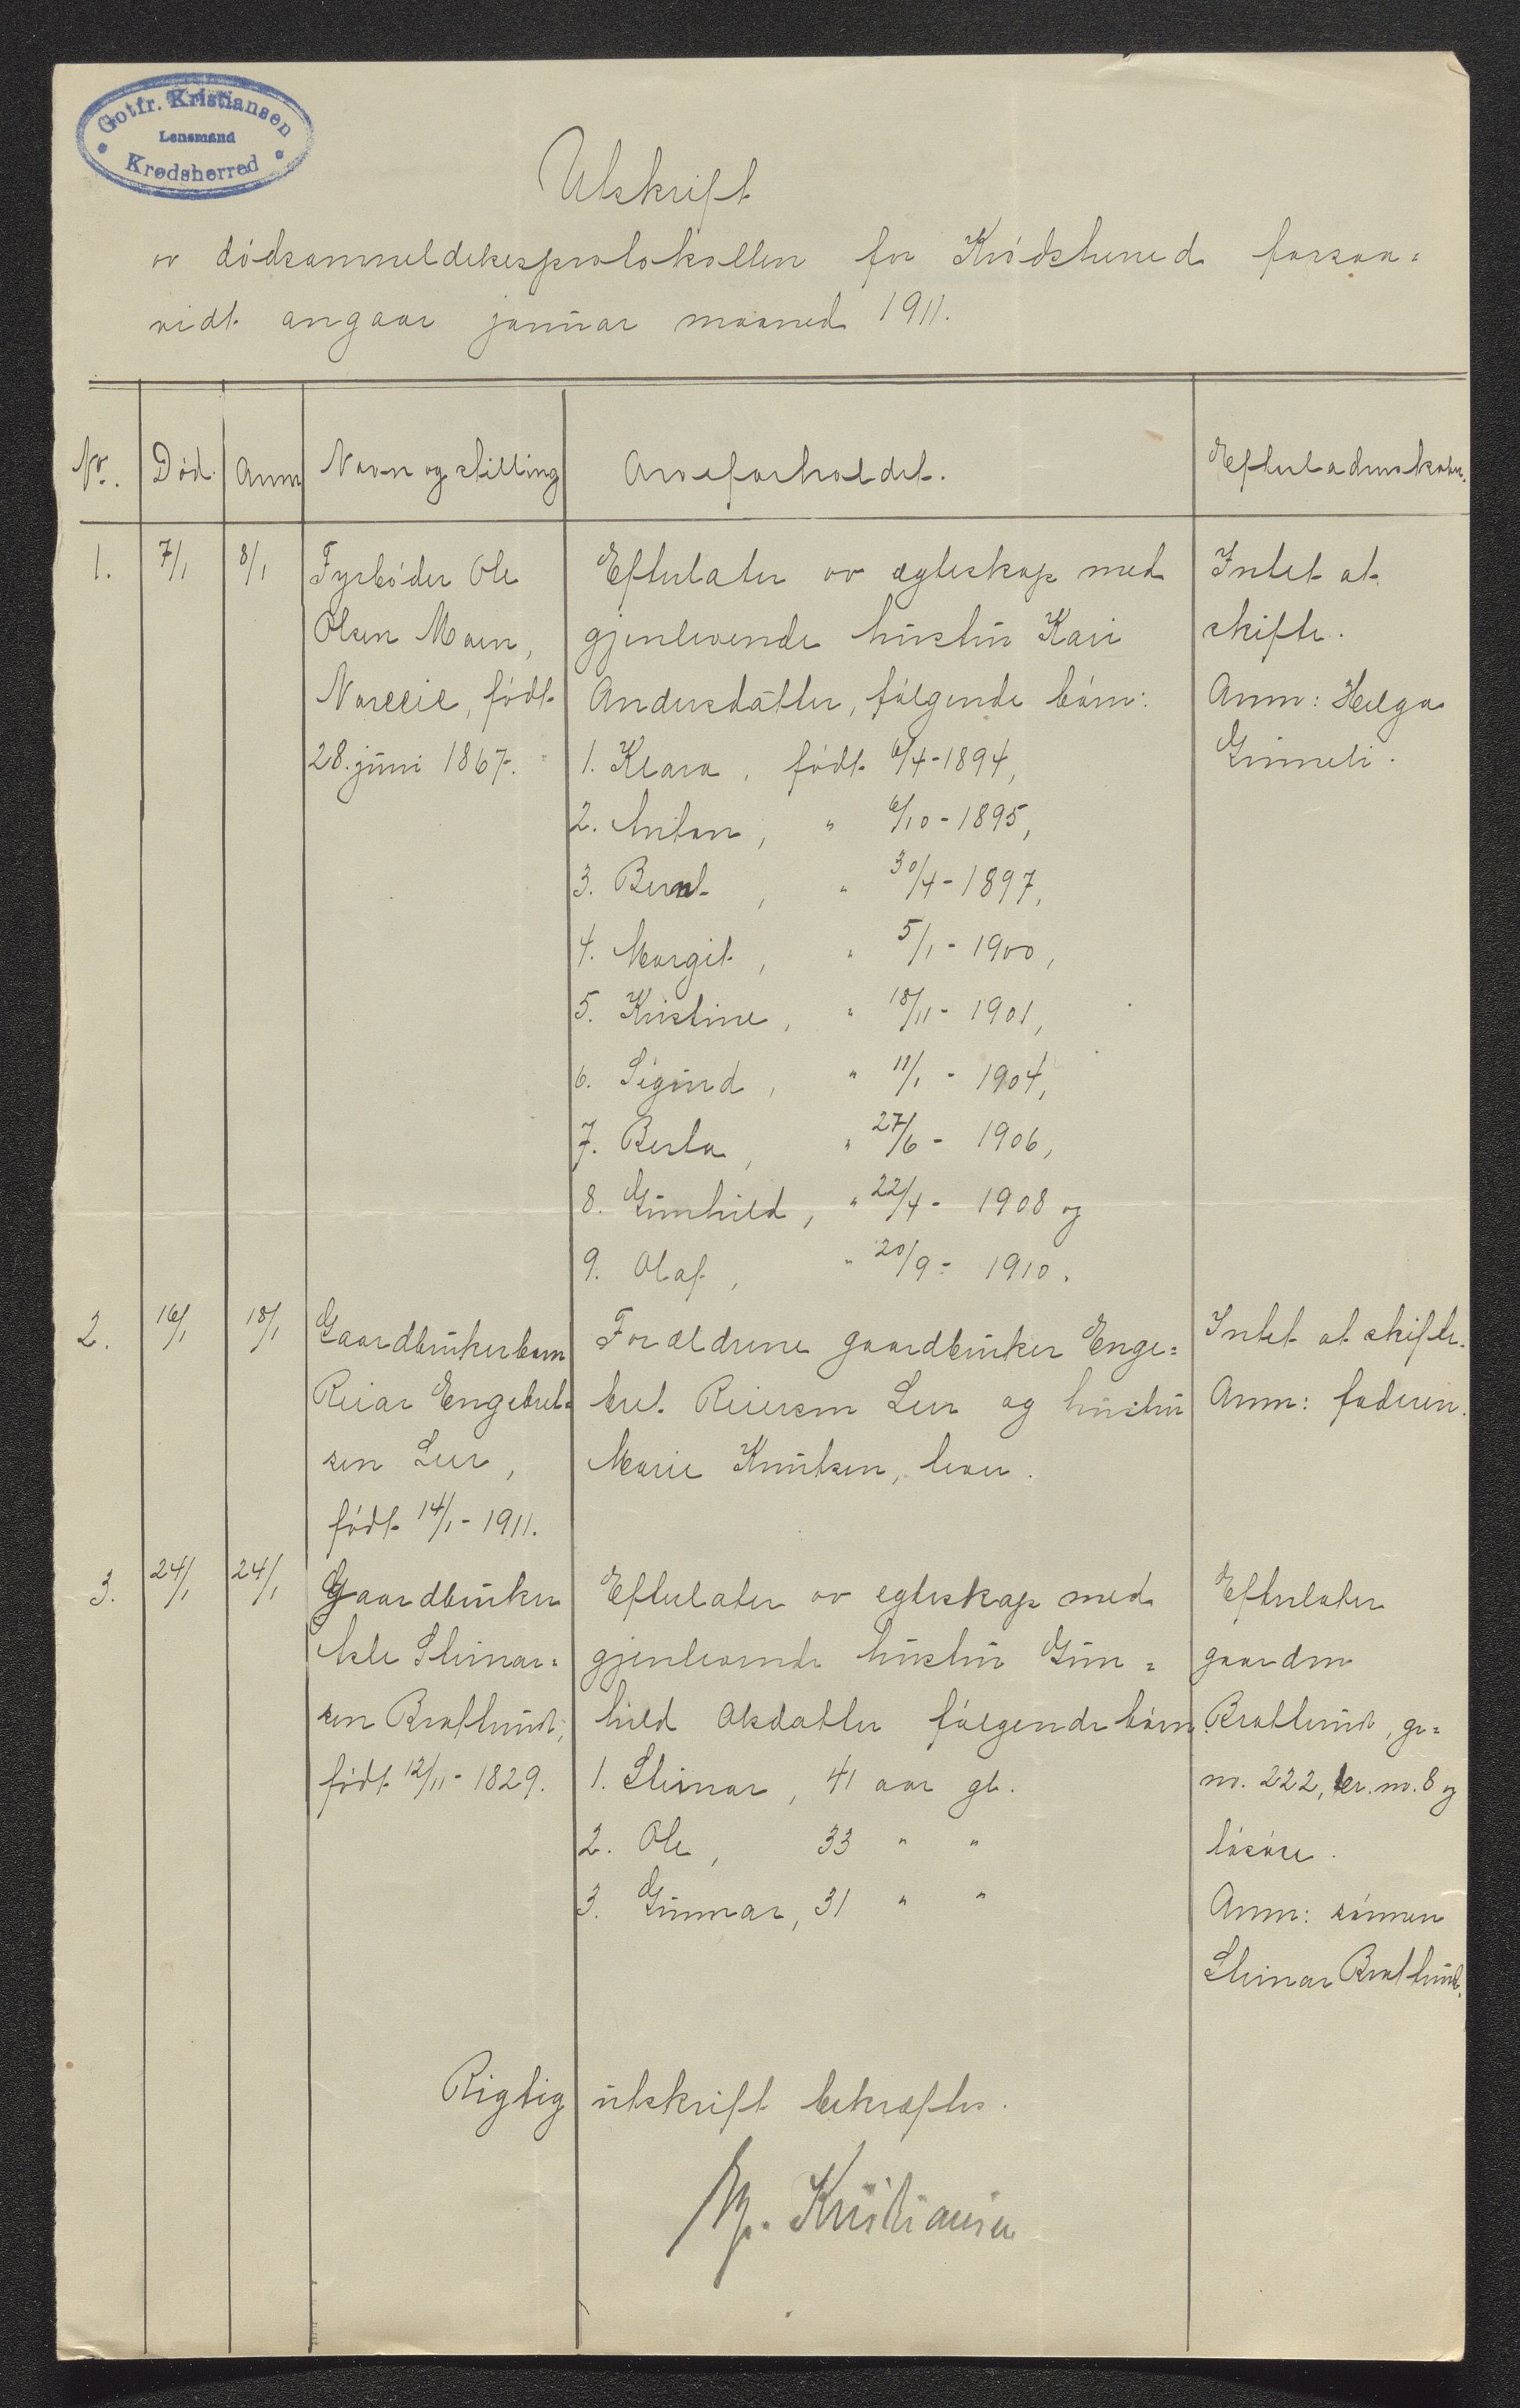 Gotfr. Kristiansen
Lensmand
Krødsherred
Utskrift
av dødsanmeldelsesprotokollen for Krødsherred forsaa=
vidt angaar januar maaned 1911.
No. Død. Anm Navn og stilling Arveforholdet. Efterladenskaber.
1. 7/1 8/1 Fyrbøder Ole Efterlater av egteskap med Intet at
Olsen Moen, gjenlevende hustru Kari skifte.
født Andersdatter, følgende børn: Anm: Helga
28. juni 1867. 1. Klara, født 6/4-1894,
2. Anton, " 6/10-1895,
3. Bernt, " 30/4-1897,
4. Margit, " 5/1-1900,
5. Kristine, " 18/11-1901,
6. Sigurd, " 11/1-1904,
7. Berta, " 27/6-1906,
8. Gunhild, " 22/4-1908 og
9. Olaf, " 20/9-1910.
2. 16/1 18/1 Gaardbrukerbarn Forældrene gaardbruker Enge= Intet at skifte.
Reiar Engebret= bret Reiersen Leer og hustru Anm: faderen.
sen Leer, Marie Knutsen, lever.
født 14/1-1911.
3. 24/1 24/1 Gaardbruker Efterlater av egteskap med Efterlater
Asle Steinar= gjenlevende hustru Gun= gaarden
sen Bratlund, hild Olsdatter følgende børn: Bratlund, gr=
født 12/11-1829. 1. Steinar, 41 aar gl. no. 222, br. no. 8 og
2. Ole, 33 " " løsøre.
3. Gunnar, 31 " " Anm: sønnen
Steinar Bratlund.
Rigtig utskrift bekræftes.
Kristiansen